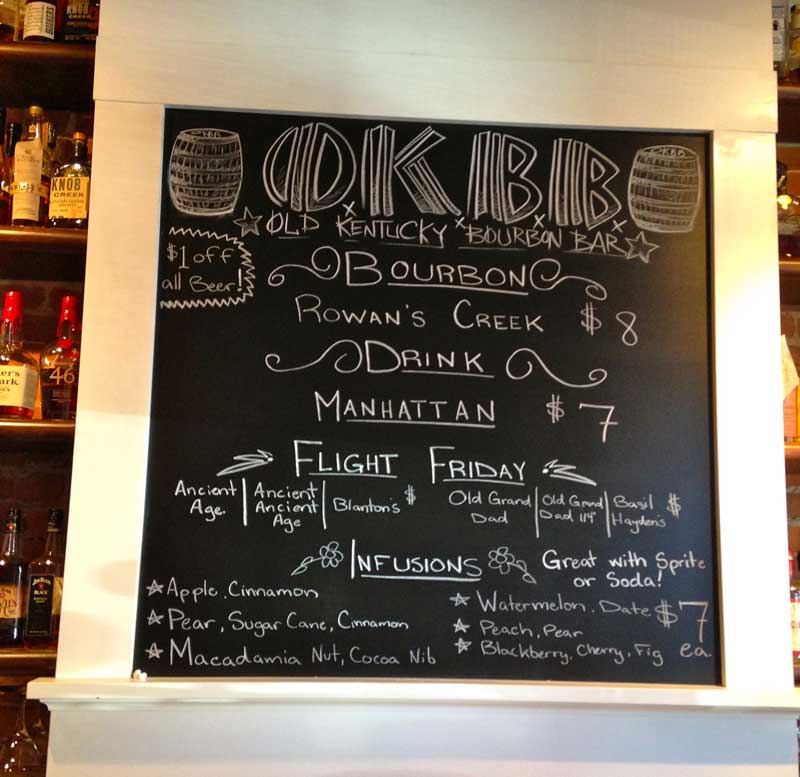 KNOB CREEK
KNOB
CREEK
46
OKBB
OLD KENTUCKY BOURBON BAR
$1 off
all Beer!
BOURBON
ROWAN'S CREEK $8
DRINK
MANHATTAN $7
FLIGHT FRIDAY
Ancient Age. | Ancient Ancient Age | Blanton's $
Old Grand Dad | Old Grand Dad 114 | Basil Hayden's $
INFUSIONS
Great with Sprite
or Soda!
Apple, Cinnamon
Pear, Sugar Cane, Cinnamon
Macadamia Nut, Cocoa Nib
Watermelon, Date
Peach, Pear
Blackberry, Cherry, Fig
$7
ea.